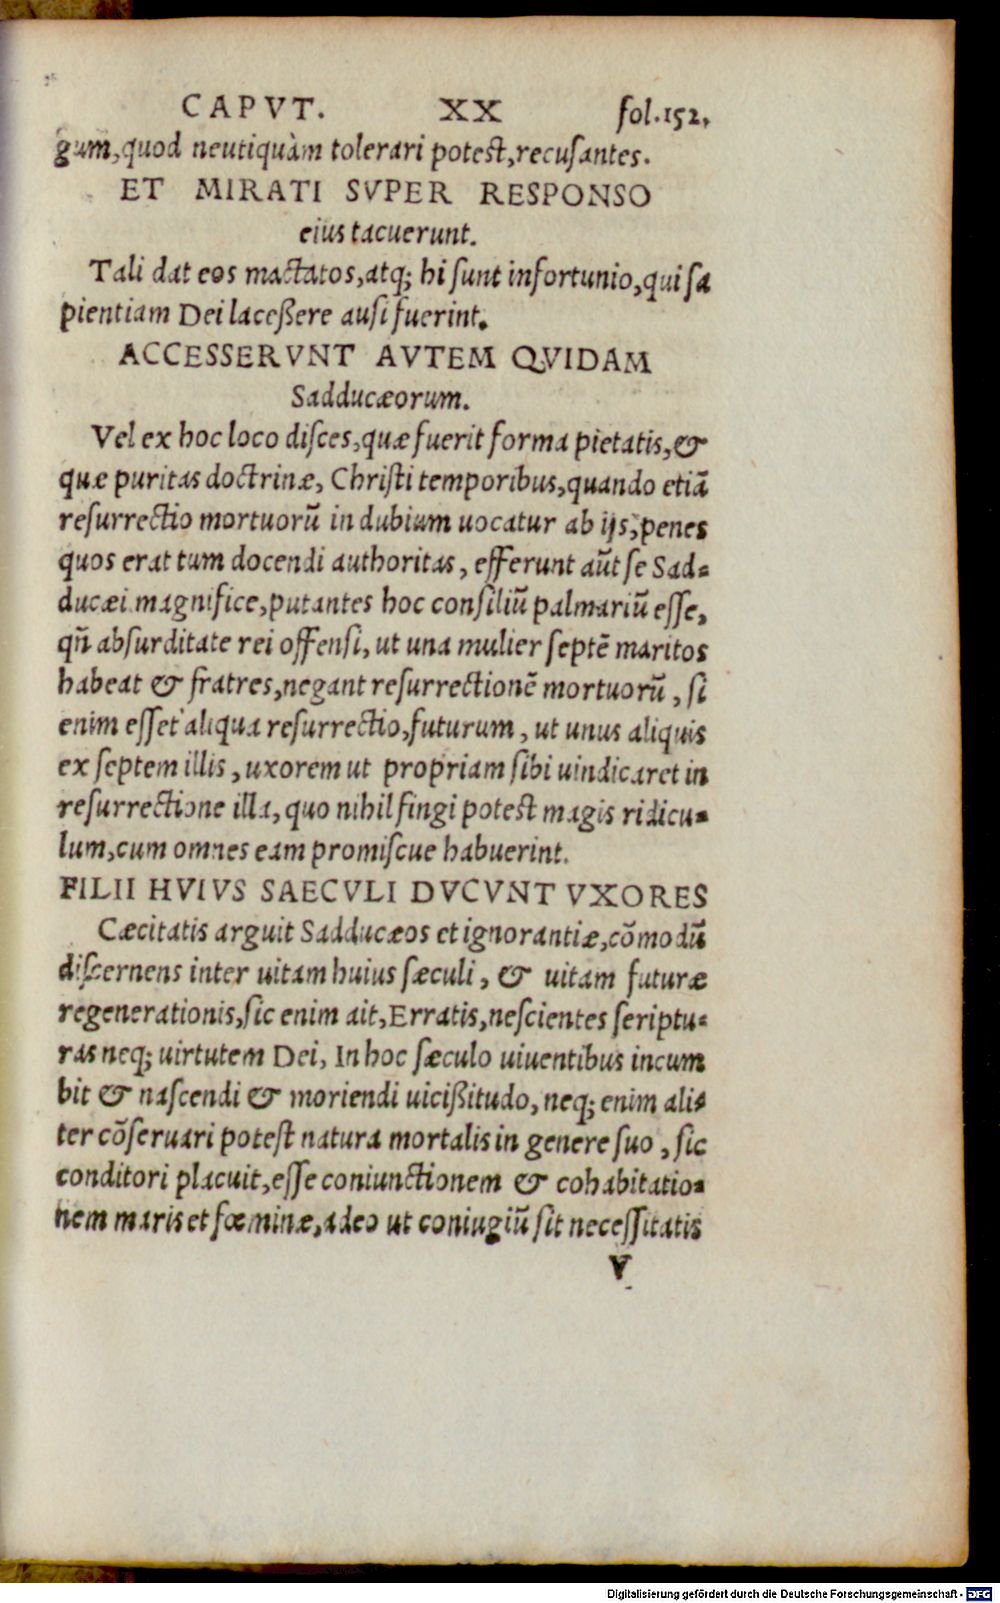 CAPVT. XX fol.152.
gum,quod neutiquàm tolerari potest,recusantes.
ET MIRATI SVPER RESPONSO
eius tacuerunt.
Tali dat eos mactatos,atq; hi ſunt infortunio,qui ſa
pientiam Dei laceßere auſi fuerint.
ACCESSERVNT AVTEM QVIDAM
Sadducæorum.
Vel ex hoc loco diſces,quæ fuerit forma pietatis,&
quæ puritas doctrinæ, Chriſti temporibus,quando etiã
reſurrectio mortuorũ in dubium uocatur ab ijs, penes
quos erat tum docendi authoritas, efferunt aũt ſe Sad-
ducæi magnifice,putantes hoc conſiliũ palmariũ eſſe,
qñ abſurditate rei offenſi, ut una mulier ſeptẽ maritos
habeat & fratres,negant reſurrectionẽ mortuorũ, ſi
enim eſſet aliqua reſurrectio,futurum, ut unus aliquis
ex ſeptem illis, uxorem ut propriam ſibi uindicaret in
reſurrectione illa, quo nihil fingi potest magis ridicu-
lum,cum omnes eam promiſcue habuerint.
FILII HVIVS SAECVLI DVCVNT VXORES
Cæcitatis arguit Sadducæos et ignorantiæ,cõmodũ
diſcernens inter uitam huius ſæculi, & uitam futuræ
regenerationis,ſic enim ait,Erratis,neſcientes ſcriptu-
ras neq; uirtutem Dei, In hoc ſæculo uiuentibus incum
bit & naſcendi & moriendi uicißitudo, neq; enim ali-
ter cõſeruari poteſt natura mortalis in genere ſuo, ſic
conditori placuit,eſſe coniunctionem & cohabitatio-
nem maris et fœminæ,adeo ut coniugiũ ſit neceſſitatis
V
Digitalisierung gefördert durch die Deutsche Forschungsgemeinschaft - DFG